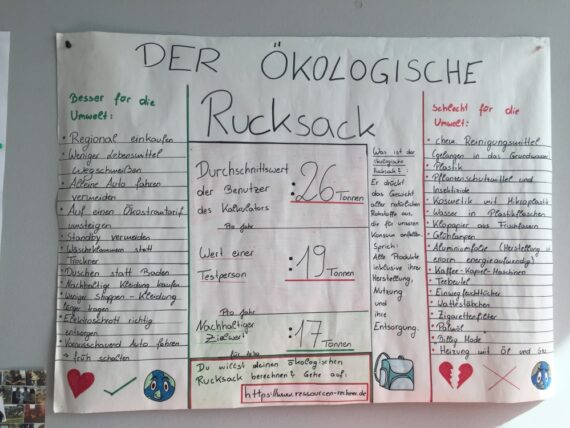 DER ÖKOLOGISCHE
Rucksack
Besser für die
Umwelt:
• Regional einkaufen
• Weniger Lebensmittel
wegschmeißen
• Alleine Auto fahren
vermeiden
• Auf einen Ökostromtarif
umsteigen
• Standby vermeiden
• Wäscheklammern statt
Trockner
• Duschen statt Baden
• Nachhaltige Kleidung kaufen
• Weniger Shoppen - Kleidung
länger tragen
• Elektroschrott richtig
entsorgen
• Vorausschauend Auto fahren
→ früh schalten
Durchschnittswert
der Benutzer
des Kalkulators
: 26 Tonnen
Pro Jahr
Wert einer
Testperson
: 19 Tonnen
Pro Jahr
Nachhaltiger
Zielwert
: 17 Tonnen
Du willst deinen ökologischen
Rucksack berechnen? Gehe auf:
https://www.ressourcen-rechner.de
Was ist der
ökologische
Rucksack?:
Er drückt
das Gewicht
aller natürlichen
Rohstoffe aus,
die für unseren
Konsum anfallen.
Sprich:
Alle Produkte
inklusive ihrer
Herstellung,
Nutzung
und
ihre
Entsorgung.
Schlecht für die
Umwelt:
• chem. Reinigungsmittel
(gelangen in das Grundwasser)
• Plastik
• Pflanzenschutzmittel und
Insektizide
• Kosmetik mit Mikroplastik
• Wasser in Plastikflaschen
• Klopapier aus Frischfasern
• Glühlampen
• Aluminiumfolie (Herstellung ist
enorm energieaufwendig)
• Kaffee-Kapsel-Maschinen
• Teebeutel
• Einwegfeuchttücher
• Wattestäbchen
• Zigarettenfilter
• Palmöl
• Billig Mode
• Heizung mit Öl und Gas